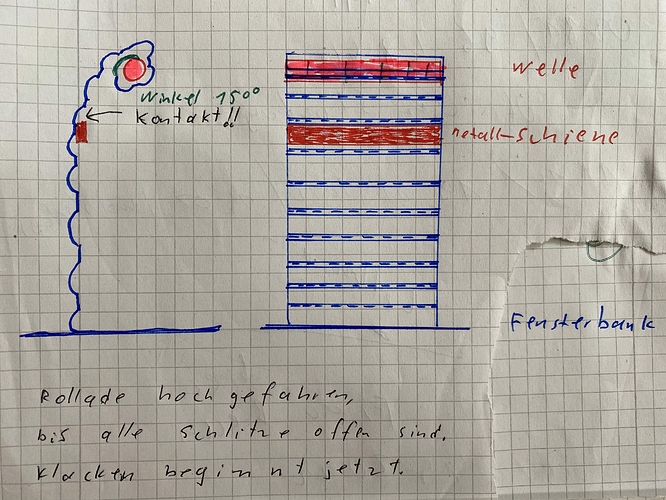 Welle
Winkel 150°
Kontakt!!
Metall-Schiene
Fensterbank
Rollade hoch gefahren,
bis alle Schlitze offen sind.
Klacken beginnt jetzt.